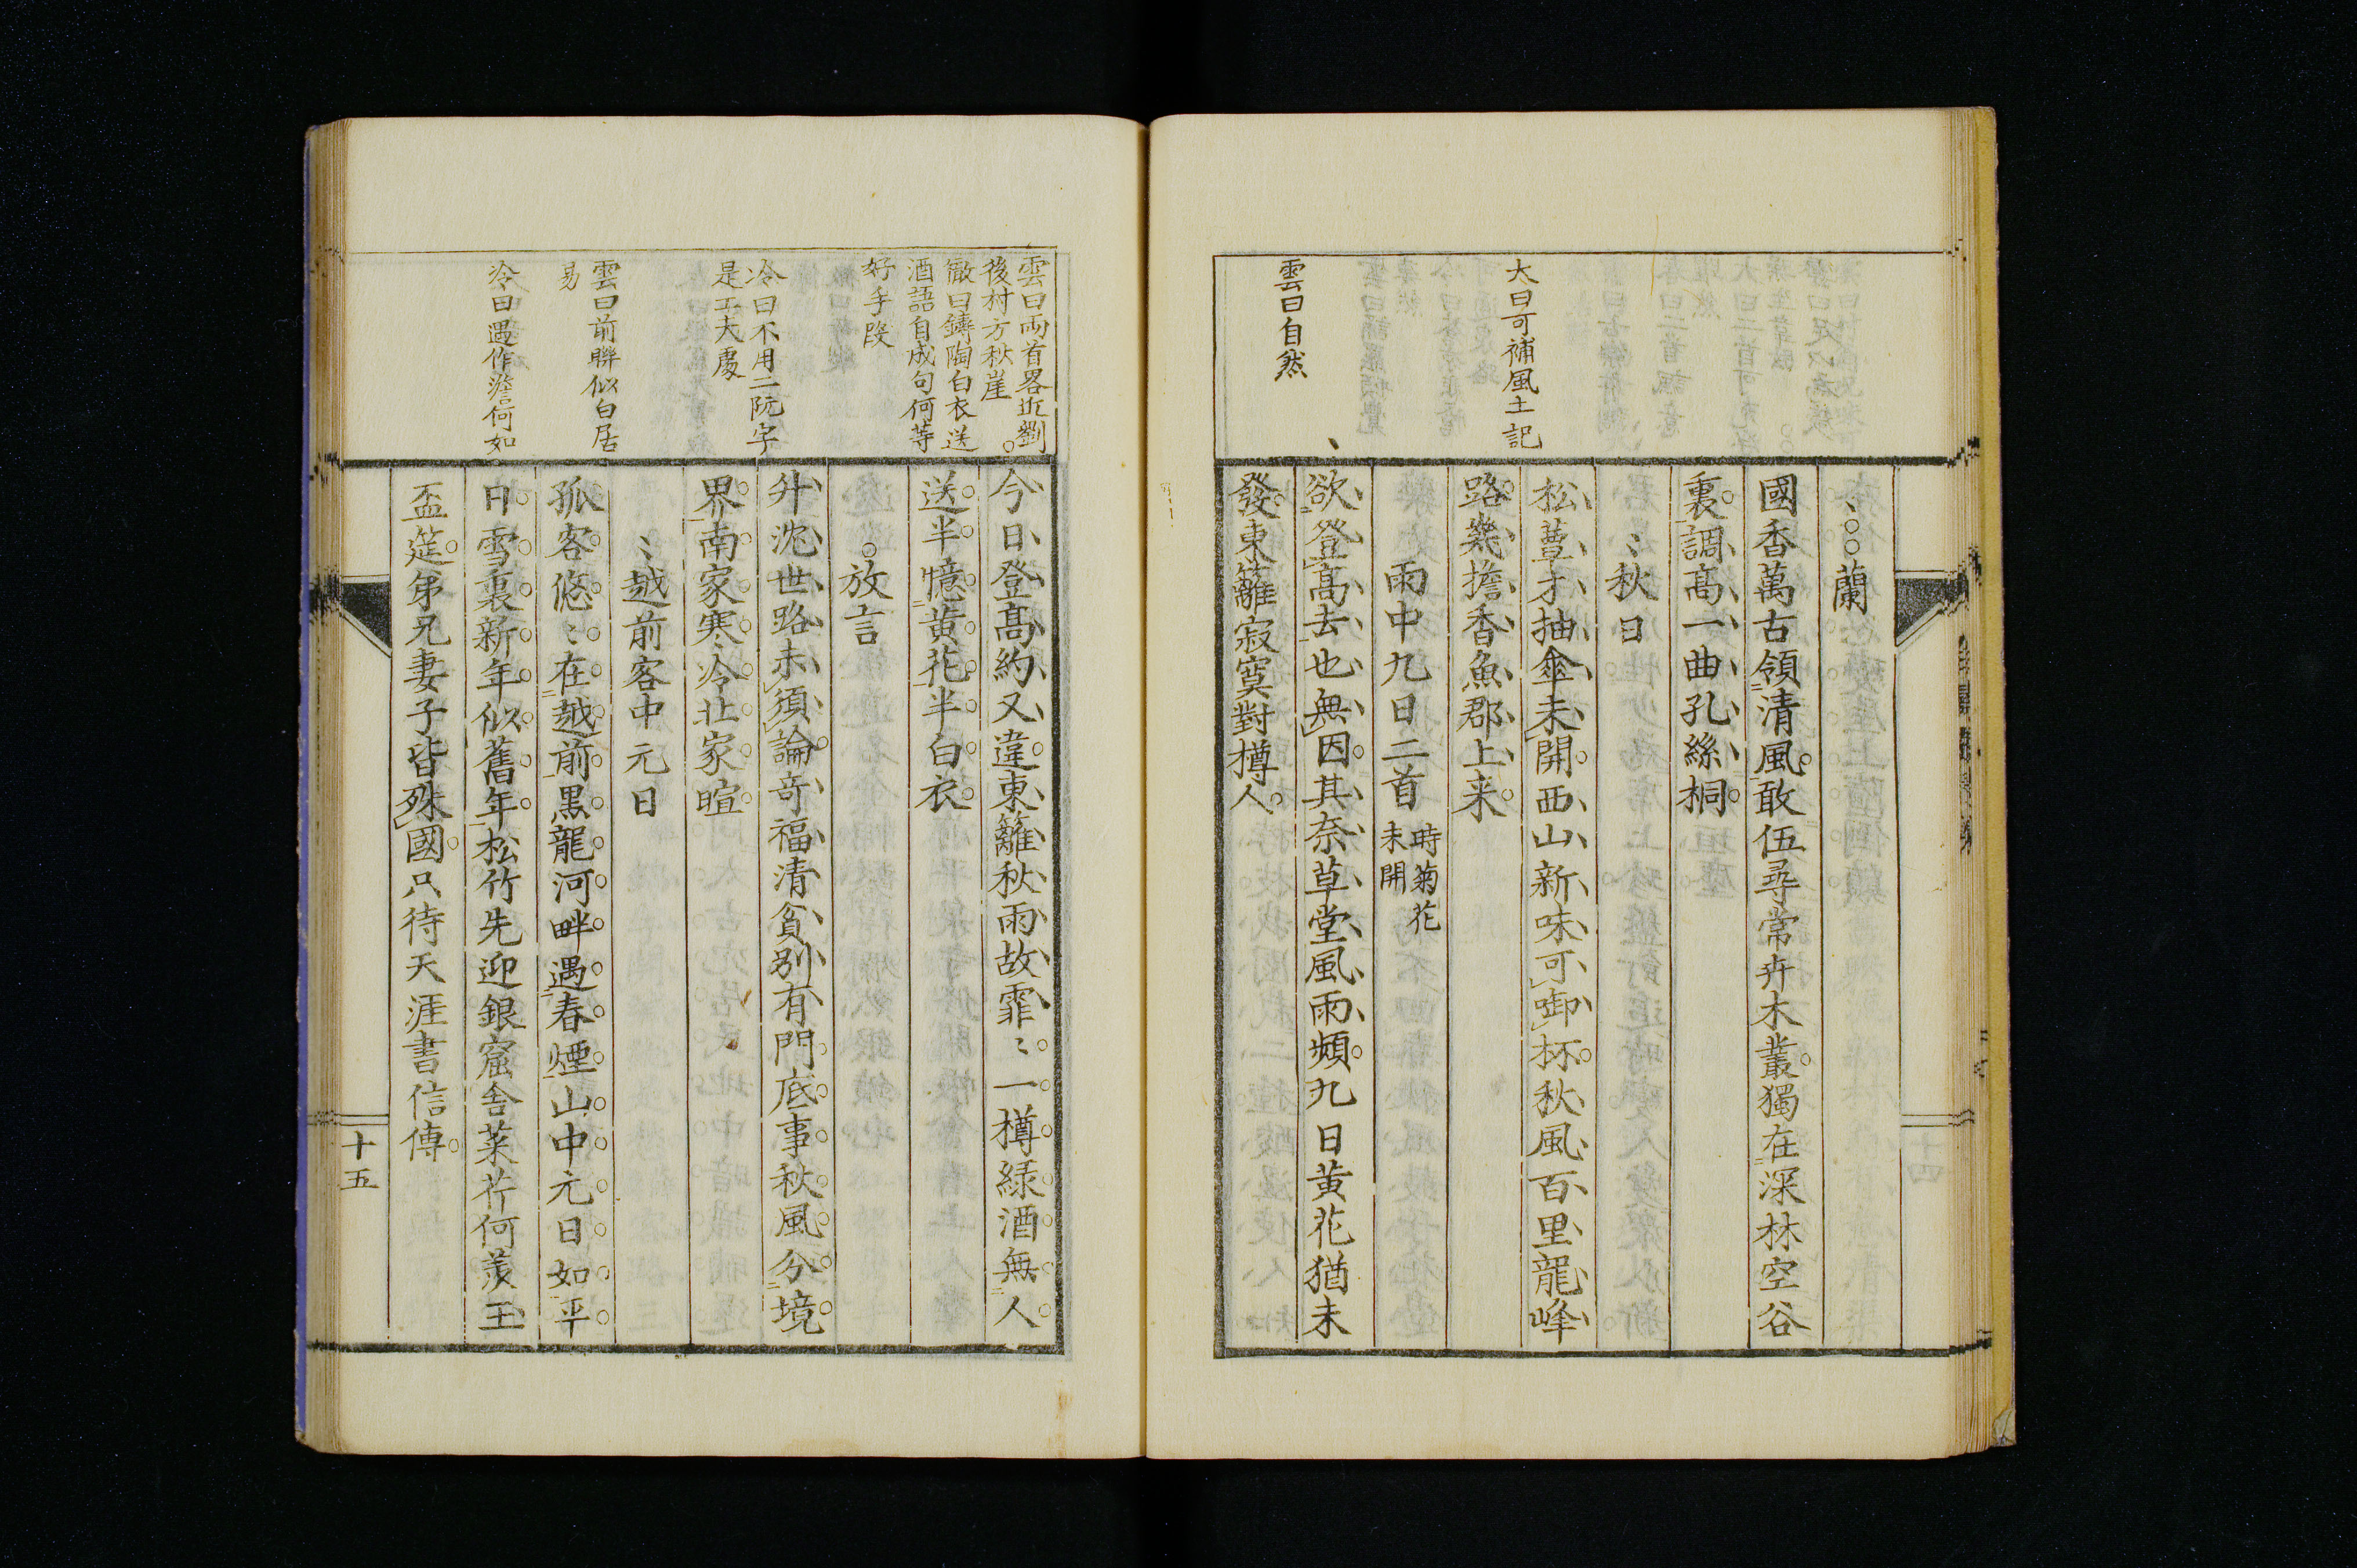 大曰可補風土記
雲曰自然
蘭
國香萬古領清風敢伍尋常卉木叢獨在深林空谷
裏調高一曲孔絲桐
秋日
松蕈才抽傘未開西山新味可啣杯秋風百里龍峰
路幾擔香魚郡上来
雨中九日二首時菊花
未開
欲登高去也無因其奈草堂風雨頻九日黄花猶未
發東籬寂寞對樽人
雲曰両首畧近劉
後村方秋崖
徹曰鑄陶白衣送
酒語自成句何等
好手段
冷曰不用二阮字
是工夫處
雲曰前聯似白居
易
冷曰遇作澹何如
今日登髙約又違東籬秋雨故霏〻一樽緑酒無人
送半憶黄花半白衣
放言
升沈世路未須論奇福清貧別有門底事秋風分境
界南家寒冷北家暄
越前客中元日
孤客悠〻在越前黒龍河畔遇春煙山中元日如平
日雪裏新年似舊年松竹先迎銀窟舎菜芥何羨玉
盃筵弟兄妻子皆殊國只待天涯書信傳
十五